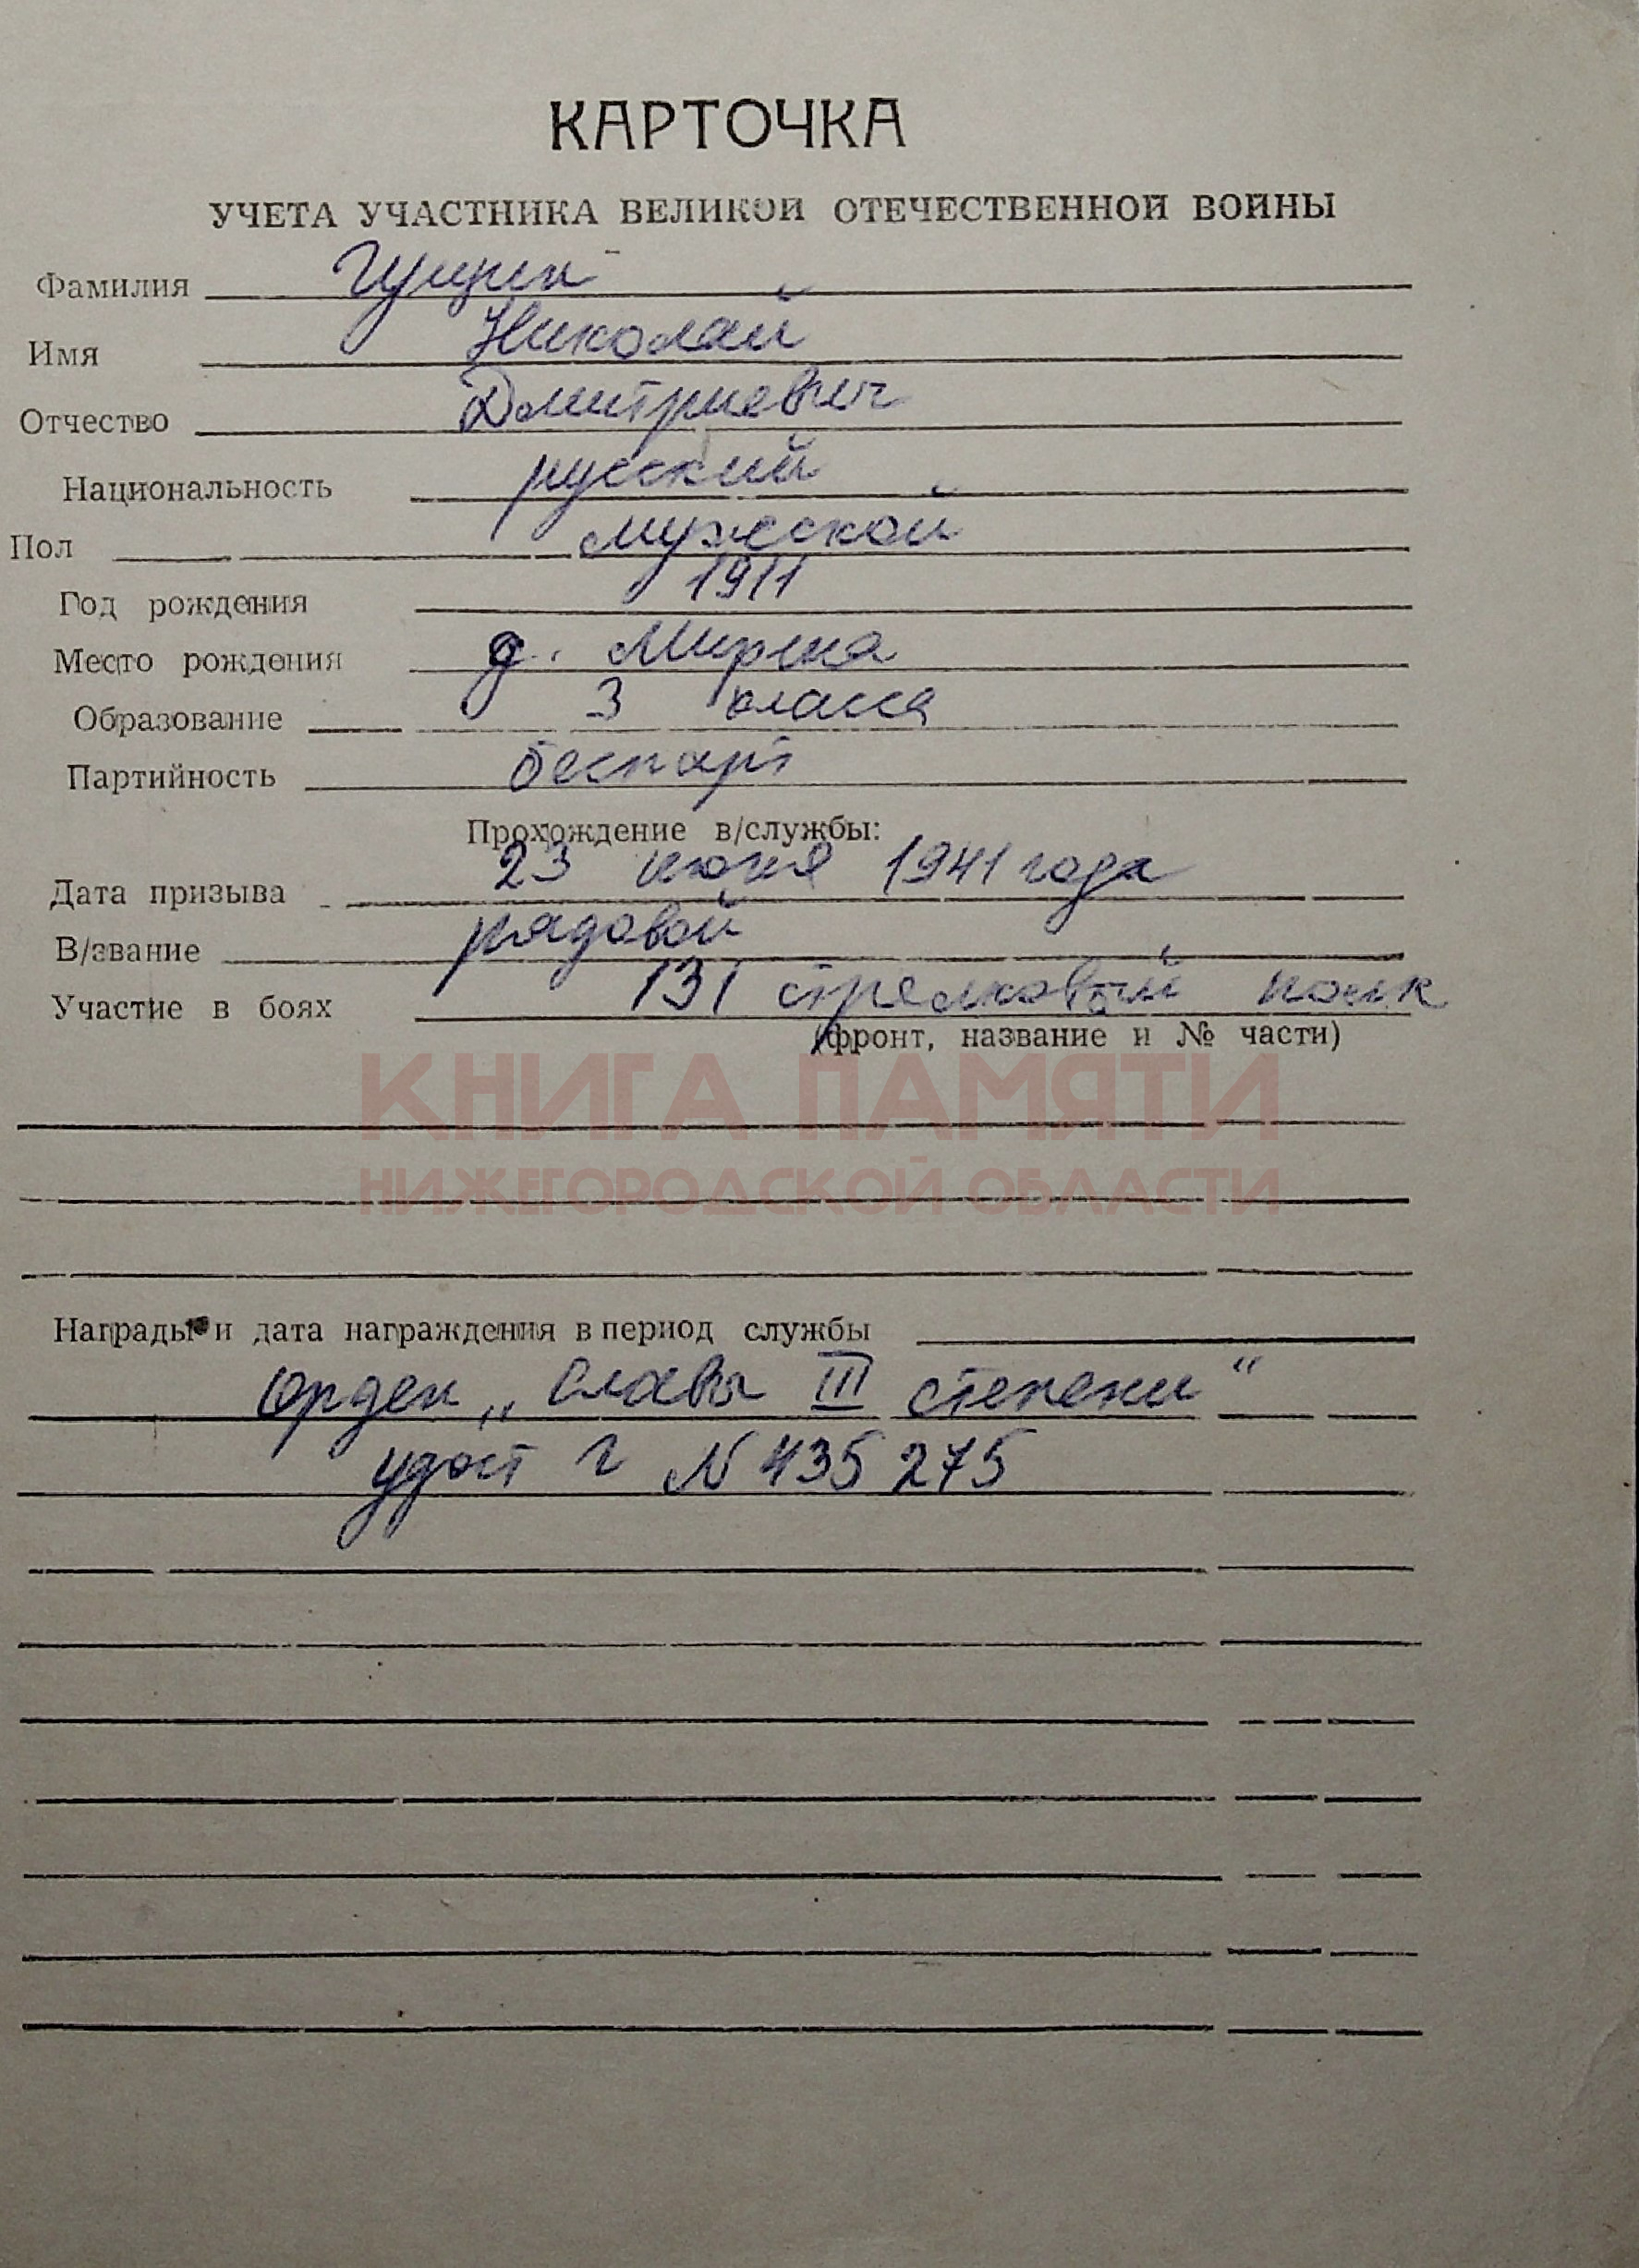 КАРТОЧКА
УЧЕТА УЧАСТНИКА ВЕЛИКОЙ ОТЕЧЕСТВЕННОЙ ВОЙНЫ
Фамилия Гущин
Имя Николай
Отчество Дмитриевич
Национальность русский
Пол мужской
Год рождения 1911
Место рождения д.
Образование 3 класса
Партийность беспарт
Прохождение в/службы:
Дата призыва 23 июня 1941 года
В/звание рядовой
Участие в боях 131 стрелковый полк
(фронт, название и № части)
КНИГА ПАМЯТИ
НИЖЕГОРОДСКОЙ ОБЛАСТИ
Награды и дата награждения в период службы
орден „Славы III степени“
удост Г № 435275